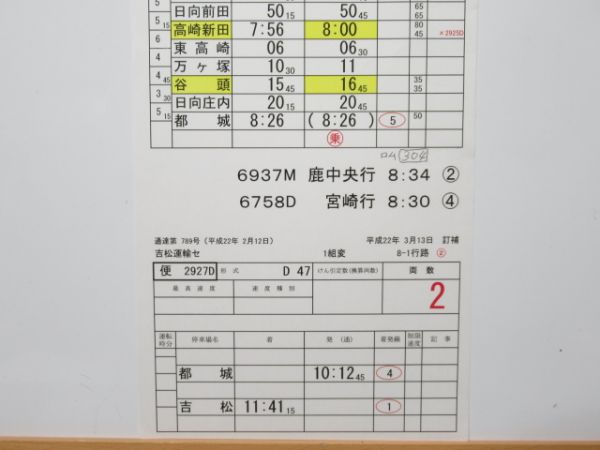 5
日向前田 50 15 50 45 65 65
5 15 高崎新田 7:56 8:00 80 45 ×2925D
5 東高崎 06 06 30
4 万ヶ塚 10 30 11
4 45 谷頭 15 45 16 45 35 35
3 30 日向庄内 20 15 20 45
5 15 都城 8:26 (8:26) 5 50
乗
ロム 304
6937M 鹿中央行 8:34 ②
6758D 宮崎行 8:30 ④
通達第 789号 (平成22年 2月12日) 平成22年 3月13日 訂補
吉松運輸セ 1組変 8-1行路 ②
便 2927D 形式 D 47 けん引定数(換算両数) 両数
最高速度 速度種別 2
運転時分 停車場名 着 発(通) 着発線 制限速度 記事
都城 10:12 45 4
吉松 11:41 15 1